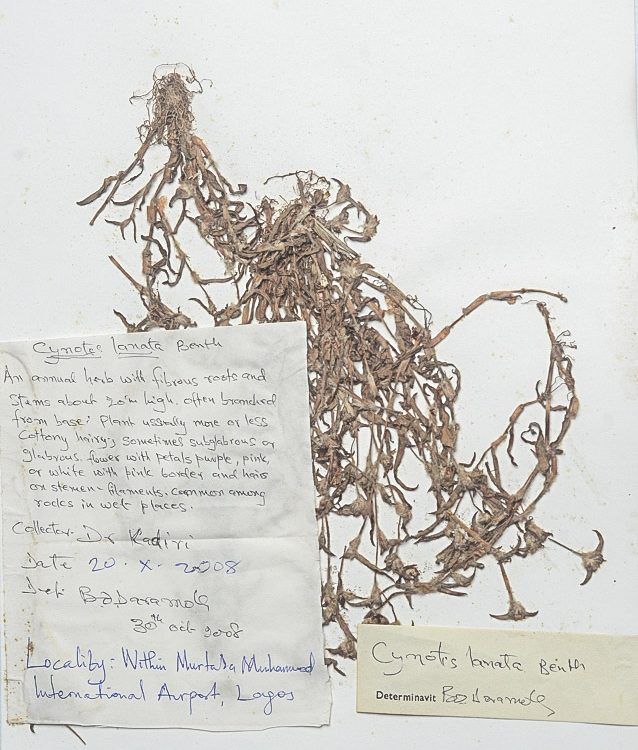 Cynotis lanata Benth
An annual herb with fibrous roots and
Stems about 20in high. often branched
from base. Plant usually more or less
Cottony hairy; sometimes subglabrous or
glabrous. flower with petals purple, pink,
or white with pink border and hairs
on stamen filaments. common among
rocks in wet places.
Collector. Dr Kadiri
Date 20. X. 2008
Det. BO Daramola
30th oct 2008
Locality: Within Murtala Muhammed
International Airport, Lagos
Cynotis lanata Benth
Determinavit BO Daramola